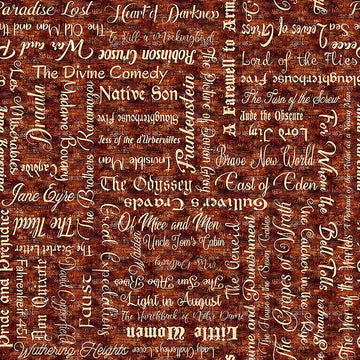 Paradise Lost
Heart of Darkness
The Old Man and the Sea
To Kill a Mockingbird
War and Peace
Robinson Crusoe
A Farewell to Arms
Leaves of Grass
Lord of the Flies
The Divine Comedy
Slaughterhouse Five
Dracula
Madame Bovary
The Brothers Karamazov
Native Son
Slaughterhouse Five
Frankenstein
The Picture of Dorian Gray
The Turn of the Screw
Jude the Obscure
Lord Jim
Les Miserables
Tess of the d'Urbervilles
Candide
Invisible Man
Brave New World
For Whom the Bell Tolls
Jane Eyre
The Odyssey
East of Eden
Gulliver's Travels
The Iliad
Of Mice and Men
Great Expectations
Uncle Tom's Cabin
The Aeneid
Crime and Punishment
The Grapes of Wrath
The Catcher in the Rye
Pride and Prejudice
The Scarlet Letter
Fahrenheit 451
Don Quixote
David Copperfield
Faust
Light in August
The Hunchback of Notre Dame
Little Women
Wuthering Heights
Lady Chatterley's Lover